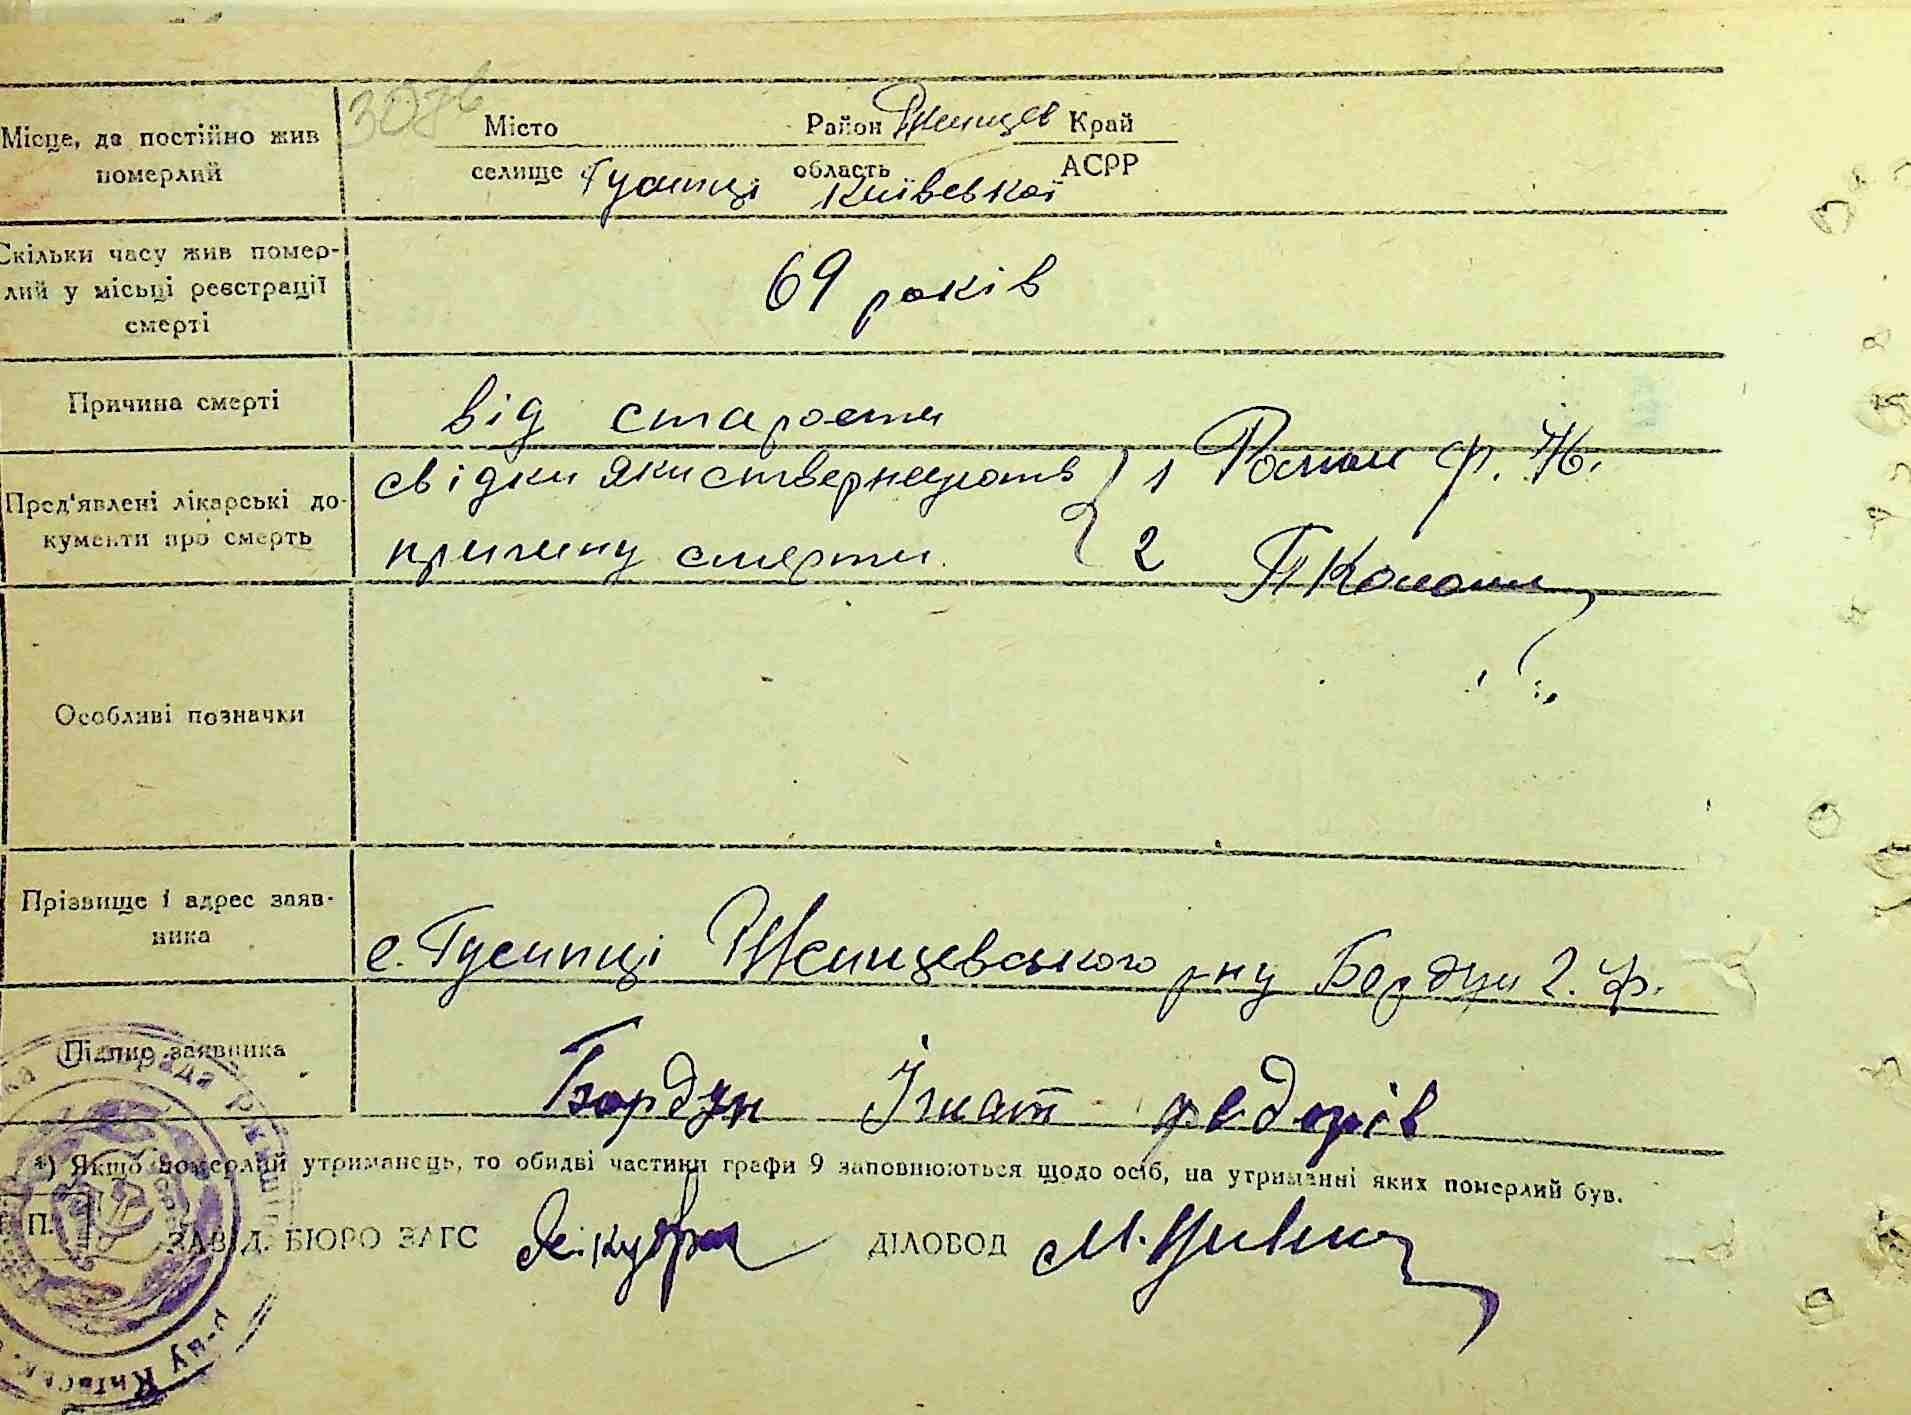 Місце, де постійно жив
померлий
Місто Район Ржищев Край
селище Гусинці область Київської АСРР
Скільки часу жив помер-
лий у місьці реєстрації
смерті
69 років
Причина смерті
від старости
Пред'явлені лікарські до-
кументи про смерть
свідки яки ствержують } 1
причину смерти. } 2
Особливі позначки
Прізвище і адрес заяв-
ника
с. Гусинці Ржищевського р-ну Бордун І. Ф.
Підпис заявника
Бордун Ігнат федорів
*) Якщо померлий утриманець, то обидві частини графи 9 заповнюються щодо осіб, на утриманні яких померлий був.
П.
ЗАВІД. БЮРО ЗАГС
ДІЛОВОД
Сільрада
р-ну Київськ.